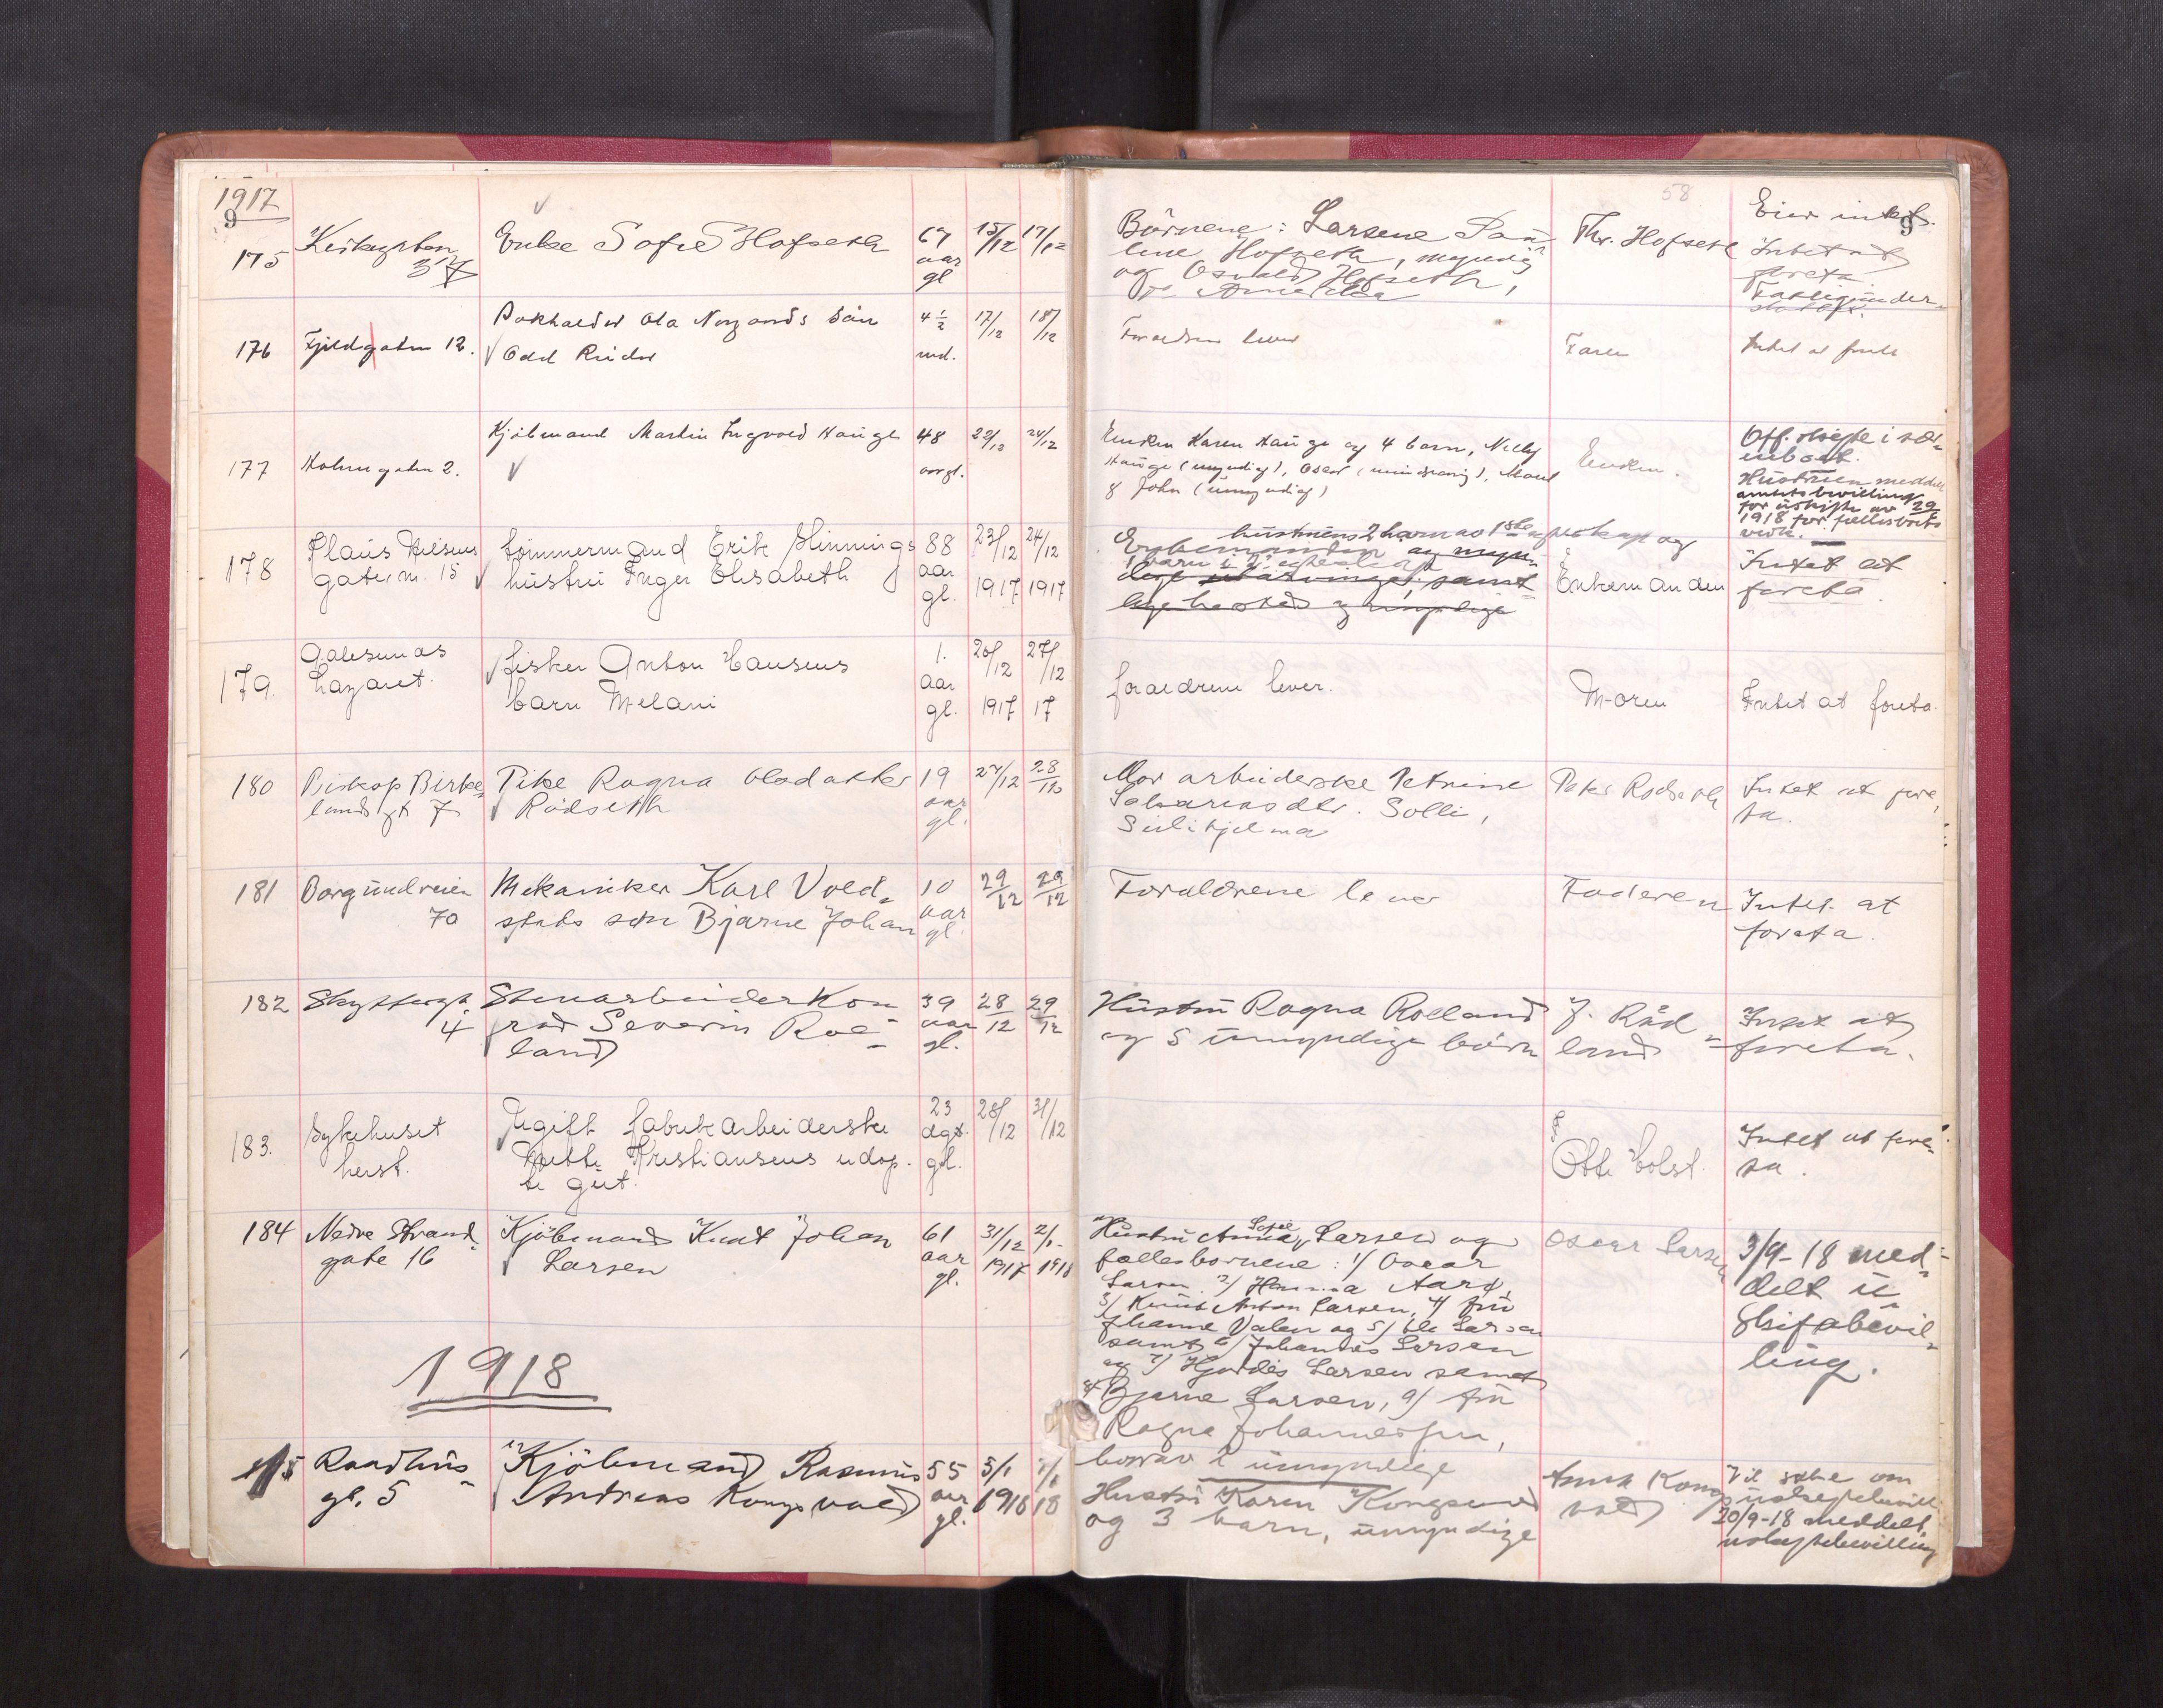 1917
58
9
9
175
Enke Sofie Hofseth
67 aar gl
15/12 17/12
Börnene: Larsene Pau-
line Hofseth, myndig
og Osvald Hofseth,
Amerika
Th. Hofseth
Eier intet.
Intet at
foreta
Fattigunder-
176
Fjeldgaten 12.
Ola Norzands sön
Odd Reidar
4 1/2 md.
17/12 18/12
Foraldrene lever
Faren
Intet at foreta
177
Holmgaten 2.
Kjöbmand Martin Ingvald Hauge
48 aar gl.
22/12 24/12
Enken Karen Hauge og 4 barn, Nelly
Hauge (myndig), Oscar (mindreaarig),
& John (umyndig)
Enken.
Off. skifte i
Hustruen meddelt
amtets bevilling
for uskifte av
1918 for fællesboets
vedk.
178
Claus Nilsens
gate m. 15
tömmermand Erik Hinnings
hustru Inger Elisabeth
88 aar gl.
23/12 1917
24/12 1917
hustruens 2 barn av 1ste egteskap og
Enkemanden og
samt
Enkemanden
Intet at
foreta.
179.
Aalesunds
Lazaret.
fisker Anton Hansens
barn Melani
1. aar gl.
26/12 1917
27/12 17
foraeldrene lever.
Moren
Intet at foreta.
180
Biskop Birke-
lands gt 7
Pike Ragna Olsdatter
Rödseth
19 aar gl.
27/12 28/12
Mor arbeiderske Petrine
Sakariasdtr. Solli,
Sulitjelma
Peter Rødseth
Intet at fore-
ta.
181
Borgundveien
70
Mekaniker Karl Vold-
stads søn Bjarne Johan
10 aar gl
29/12 29/12
Foraldrene lever
Faderen
Intet at
foreta.
182
Skyttergt.
4
Stenarbeider Kon
rad Severin Roe-
land
39 aar gl.
28/12 29/12
Hustru Ragna Roeland
og 5 umyndige börn
J. Råd
land
Intet at
foreta.
183.
Sykehuset
herst.
Ugift fabrikarbeiderske
Kristiansens udöp-
te gut.
23 dgs. gl.
28/12 31/12
Otto Holst.
Intet at fore-
ta.
184
Nedre Strand-
gate 16
Kjöbmand Knut Johan
Larsen
61 aar gl.
31/12 1917
2/1 1918
Hustru Anna Larsen og
fællesbørnene: 1/ Oscar
Larsen 2/ Hanna Aarø,
3/ Knut Anton Larsen, 4/ fru
Johanne Valen og 5/ Ole Larsen
samt 6/ Johannes Larsen
og 7/ Hjørdis Larsen samt
8/ Bjarne Larsen, 9/ fru
Ragna Johannessen,
hvorav 2 umyndige
Oscar Larsen
3/9-18 med-
delt u-
skiftebevil-
ling.
1918
Raadhus-
gt. 5
Kjöbmand Rasmus
Andreas Kongsvold
55 aar gl.
5/1 1918
18
Hustru Karen Kongsvold
og 3 barn, umyndige
Kongs
vold
Vil søke om
uskiftebevill.
20/9-18 meddelt
uskiftebevilling